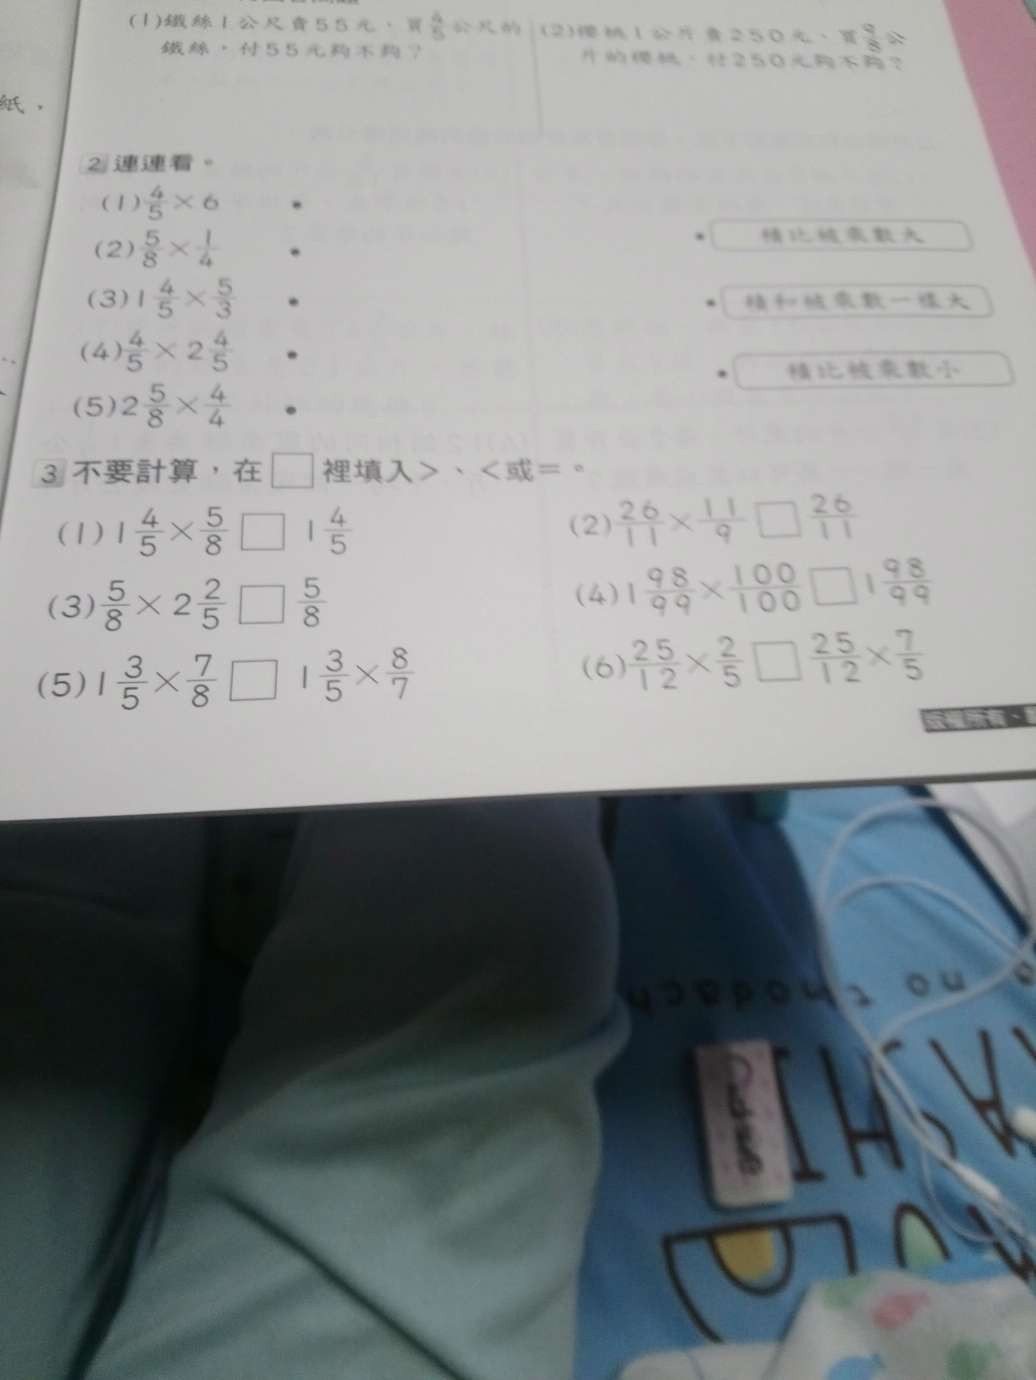 (1)鐵絲1公尺賣55元，買4/5公尺的
鐵絲，付55元夠不夠？
(2)櫻桃1公斤賣250元，買9/8公
斤的櫻桃，付250元夠不夠？
紙，
2 連連看。
(1) 4/5 × 6
(2) 5/8 × 1/4
(3) 1 4/5 × 5/3
(4) 4/5 × 2 4/5
(5) 2 5/8 × 4/4
積比被乘數大
積和被乘數一樣大
積比被乘數小
3 不要計算，在□裡填入＞、＜或＝。
(1) 1 4/5 × 5/8 □ 1 4/5
(2) 26/11 × 11/9 □ 26/11
(3) 5/8 × 2 2/5 □ 5/8
(4) 1 98/99 × 100/100 □ 1 98/99
(5) 1 3/5 × 7/8 □ 1 3/5 × 8/7
(6) 25/12 × 2/5 □ 25/12 × 7/5
版權所有·